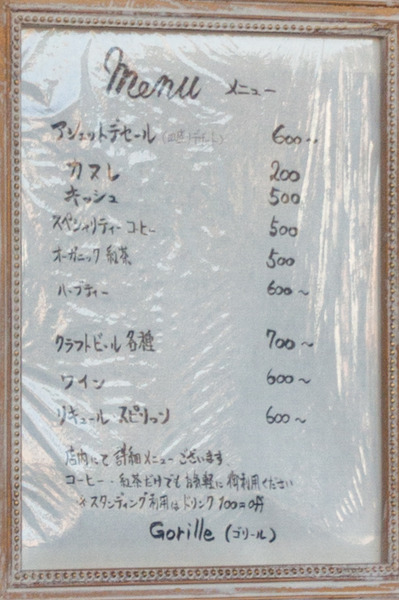 Menu メニュー
アシェットデセール (皿盛りデザート) 600〜
カヌレ 200
キッシュ 500
スペシャリティーコーヒー 500
オーガニック紅茶 500
ハーブティー 600〜
クラフトビール各種 700〜
ワイン 600〜
リキュール スピリッツ 600〜
店内にて詳細メニューございます
コーヒー・紅茶だけでもお気軽に御利用ください
※スタンディング利用はドリンク100円off
Gorille (ゴリール)